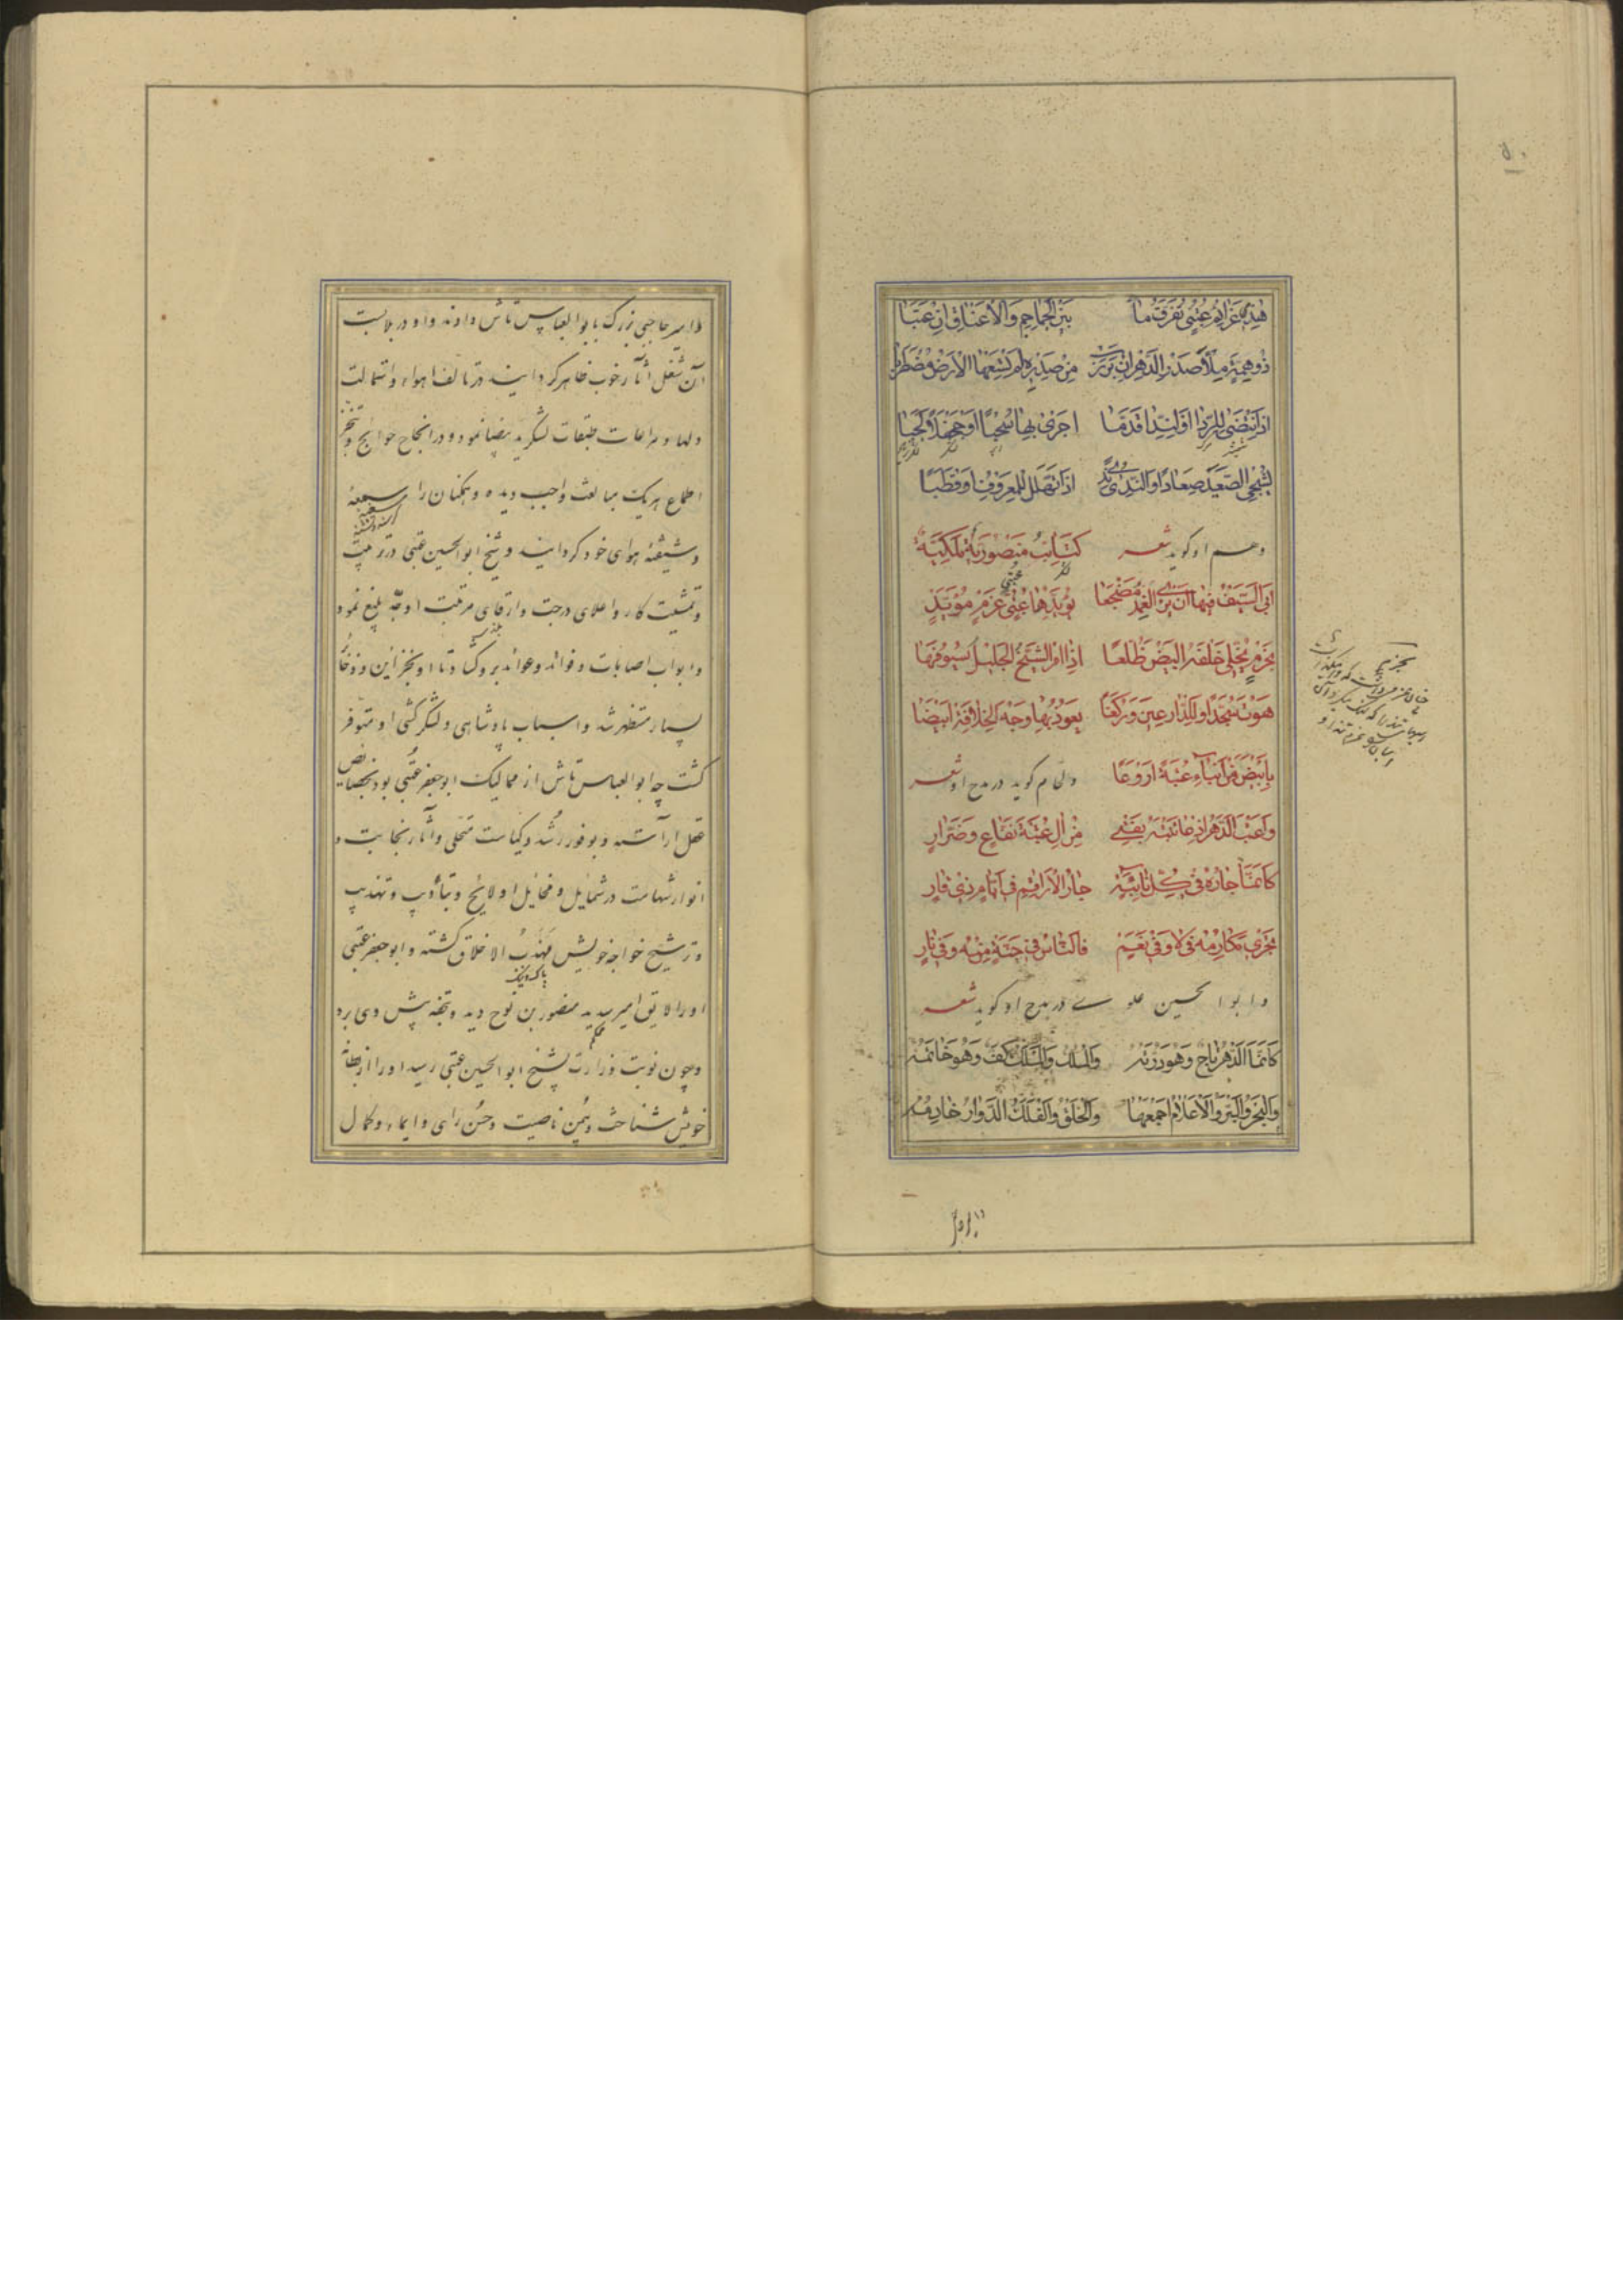 هذه عزائم عتبی تفرق ما بین الجماجم والاعناق ان عتبا
ذو همة ملأت صدر الدهر ان برزت من صدره لم تسعها الارض مضطربا
اذا انتضی للردی او للندا قدما اجری بها سحبا او جحفلا لجبا
الصعید صعادا او الندی ندی اذا تهلل للمعروف او قطبا
وهم او کوید شعر کتائب منصوریة ملکیة
ابی السیف فیها ان یری الغمد مضجعا یؤیدها عتبی عزم مؤید
بحزم یخلی خلفه البیض ظلعا اذا ام الشیخ الجلیل سیوفها
هوت سجدا او للذارعین ورکعا یعود بها وجه الخلافة ابیضا
بابیض من ابناء عتبة اروعا ولحام کوید در مدح او شعر
واعتب الدهر اذ عاتبته بفتی من آل عتبة نفاع وضرار
کانما جاره فی کل نائبة جار الاراقم فی ایام ذی قار
تجری مکارمه فی لا وفی نعم فالناس فی جنة منه وفی نار
وابو الحسین علوی در مدح او کوید شعر
کانما الدهر تاج وهو درته والملک والملک کف وهو خاتمه
والبحر والبر والاعلام اجمعها والخلق والفلک الدوار خادمه
امیر حاجبی بزرک بابو العباس تاش دادند واو در ملابست
آن شغل آثار خوب ظاهر کردانید در تالف اهواء واستمالت
دلها و مراعات طبقات لشکر ید بیضا نمود ودر انجاح حوایج وتنجز
اطماع هر یک مبالغت واجب دیده وهمکنان را
وشیفته هوای خود کردانید وشیخ ابو الحسین عتبی در تربیت
وتمشیت کار واعلای درجت وارتقای مرتبت او جد بلیغ نمود
وابواب اصابات وفوائد وعوائد برو کشاد تا او بخزاین وذخائر
بسیار مستظهر شد واسباب پادشاهی ولشکر کشی او متوفر
کشت چه ابو العباس تاش از ممالیک ابو جعفر عتبی بود بخصایص
عقل آراسته وبوفور رشد وکیاست متحلی وآثار نجابت و
انوار شهامت در شمایل ومخایل او لایح وبتأدیب وتهذیب
وترشیح خواجه خویش مهذب الاخلاق کشته وابو جعفر عتبی
او را لایق امیر سدید منصور بن نوح دید وبتحفه پیش وی برد
وچون نوبت وزارت بشیخ ابو الحسین عتبی رسید او را از بطانه
خویش شناخت ویمن ناصیت وحسن رای وایماء وکمال